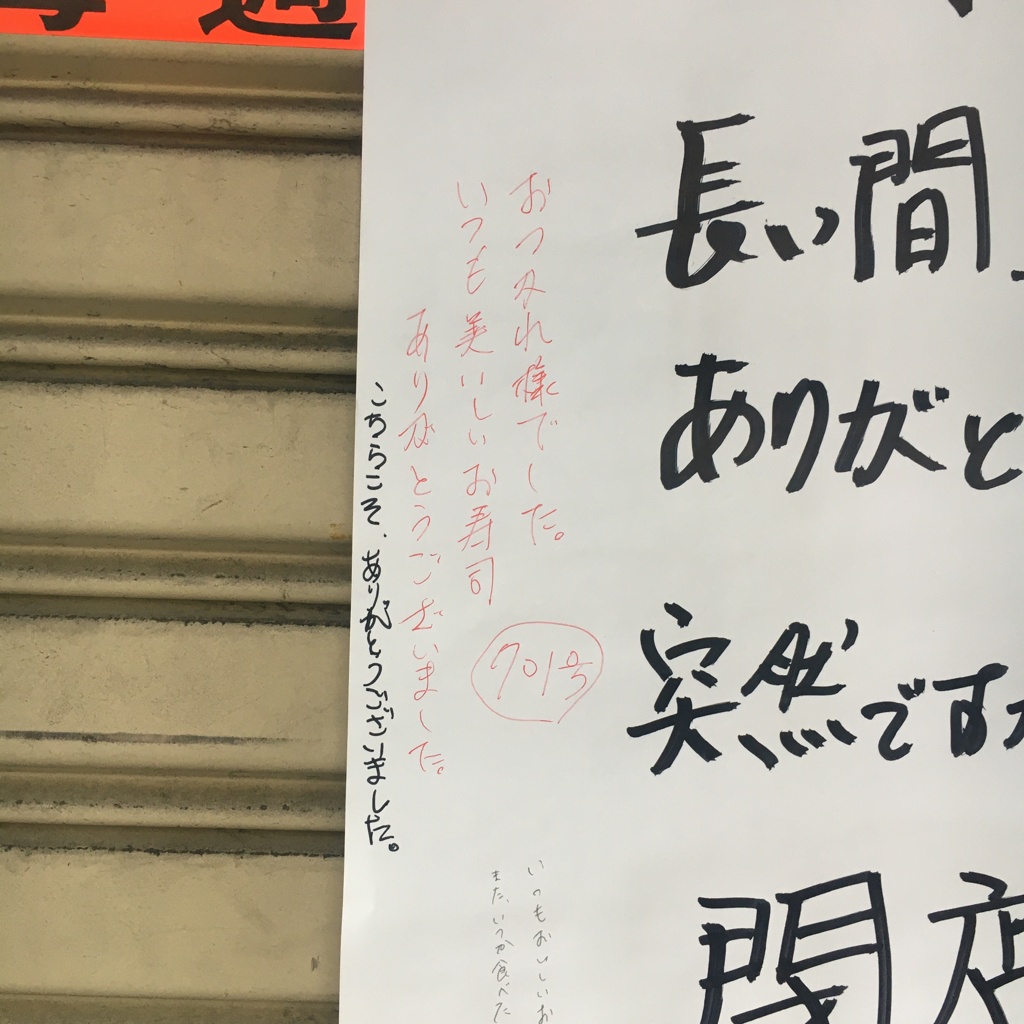 毎週
長い間
ありがと
突然ですが
閉店
おつかれ様でした。
いつも美いしいお寿司
ありがとうございました。
701号
こちらこそ、ありがとうございました。
いつもおいしいお
また、いつか食べた